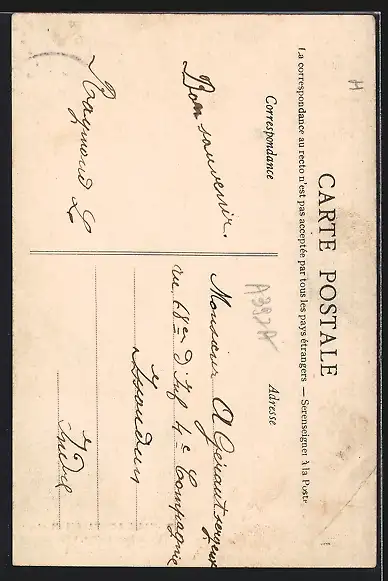 CARTE POSTALE
La correspondance au recto n'est pas acceptée par tous les pays étrangers — Se renseigner à la Poste
Correspondance
Adresse
Bon souvenir.
Raymond L
Monsieur A Gérault sergent
au 68e d'Inf 4e Compagnie
Issoudun
Indre
A397A
H